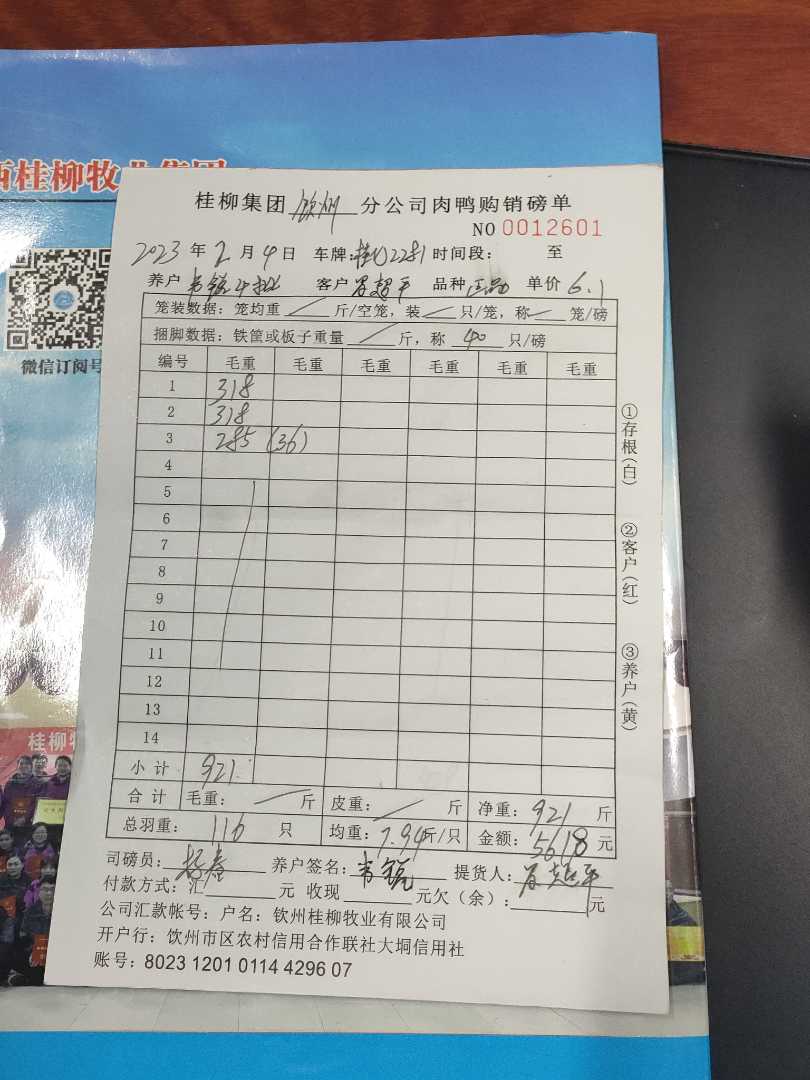 西桂柳牧业集团
微信订阅号
桂柳
桂柳集团 钦州 分公司肉鸭购销磅单
NO 0012601
2023 年 2 月 4 日 车牌: 2281 时间段: 至
养户 客户 超平 品种 正品 单价 6.1
笼装数据: 笼均重 斤/空笼, 装 只/笼, 称 笼/磅
捆脚数据: 铁筐或板子重量 斤, 称 40 只/磅
编号 毛重 毛重 毛重 毛重 毛重 毛重
1 318
2 318
3 285 (36)
4
5
6
7
8
9
10
11
12
13
14
小计 921
合计 毛重: 斤 皮重: 斤 净重: 921 斤
总羽重: 116 只 均重: 7.94 斤/只 金额: 5618 元
司磅员: 养户签名: 提货人: 超平
付款方式: 汇 元 收现 元欠(余): 元
公司汇款帐号: 户名: 钦州桂柳牧业有限公司
开户行: 钦州市区农村信用合作联社大垌信用社
账号: 8023 1201 0114 4296 07
①存根(白)
②客户(红)
③养户(黄)